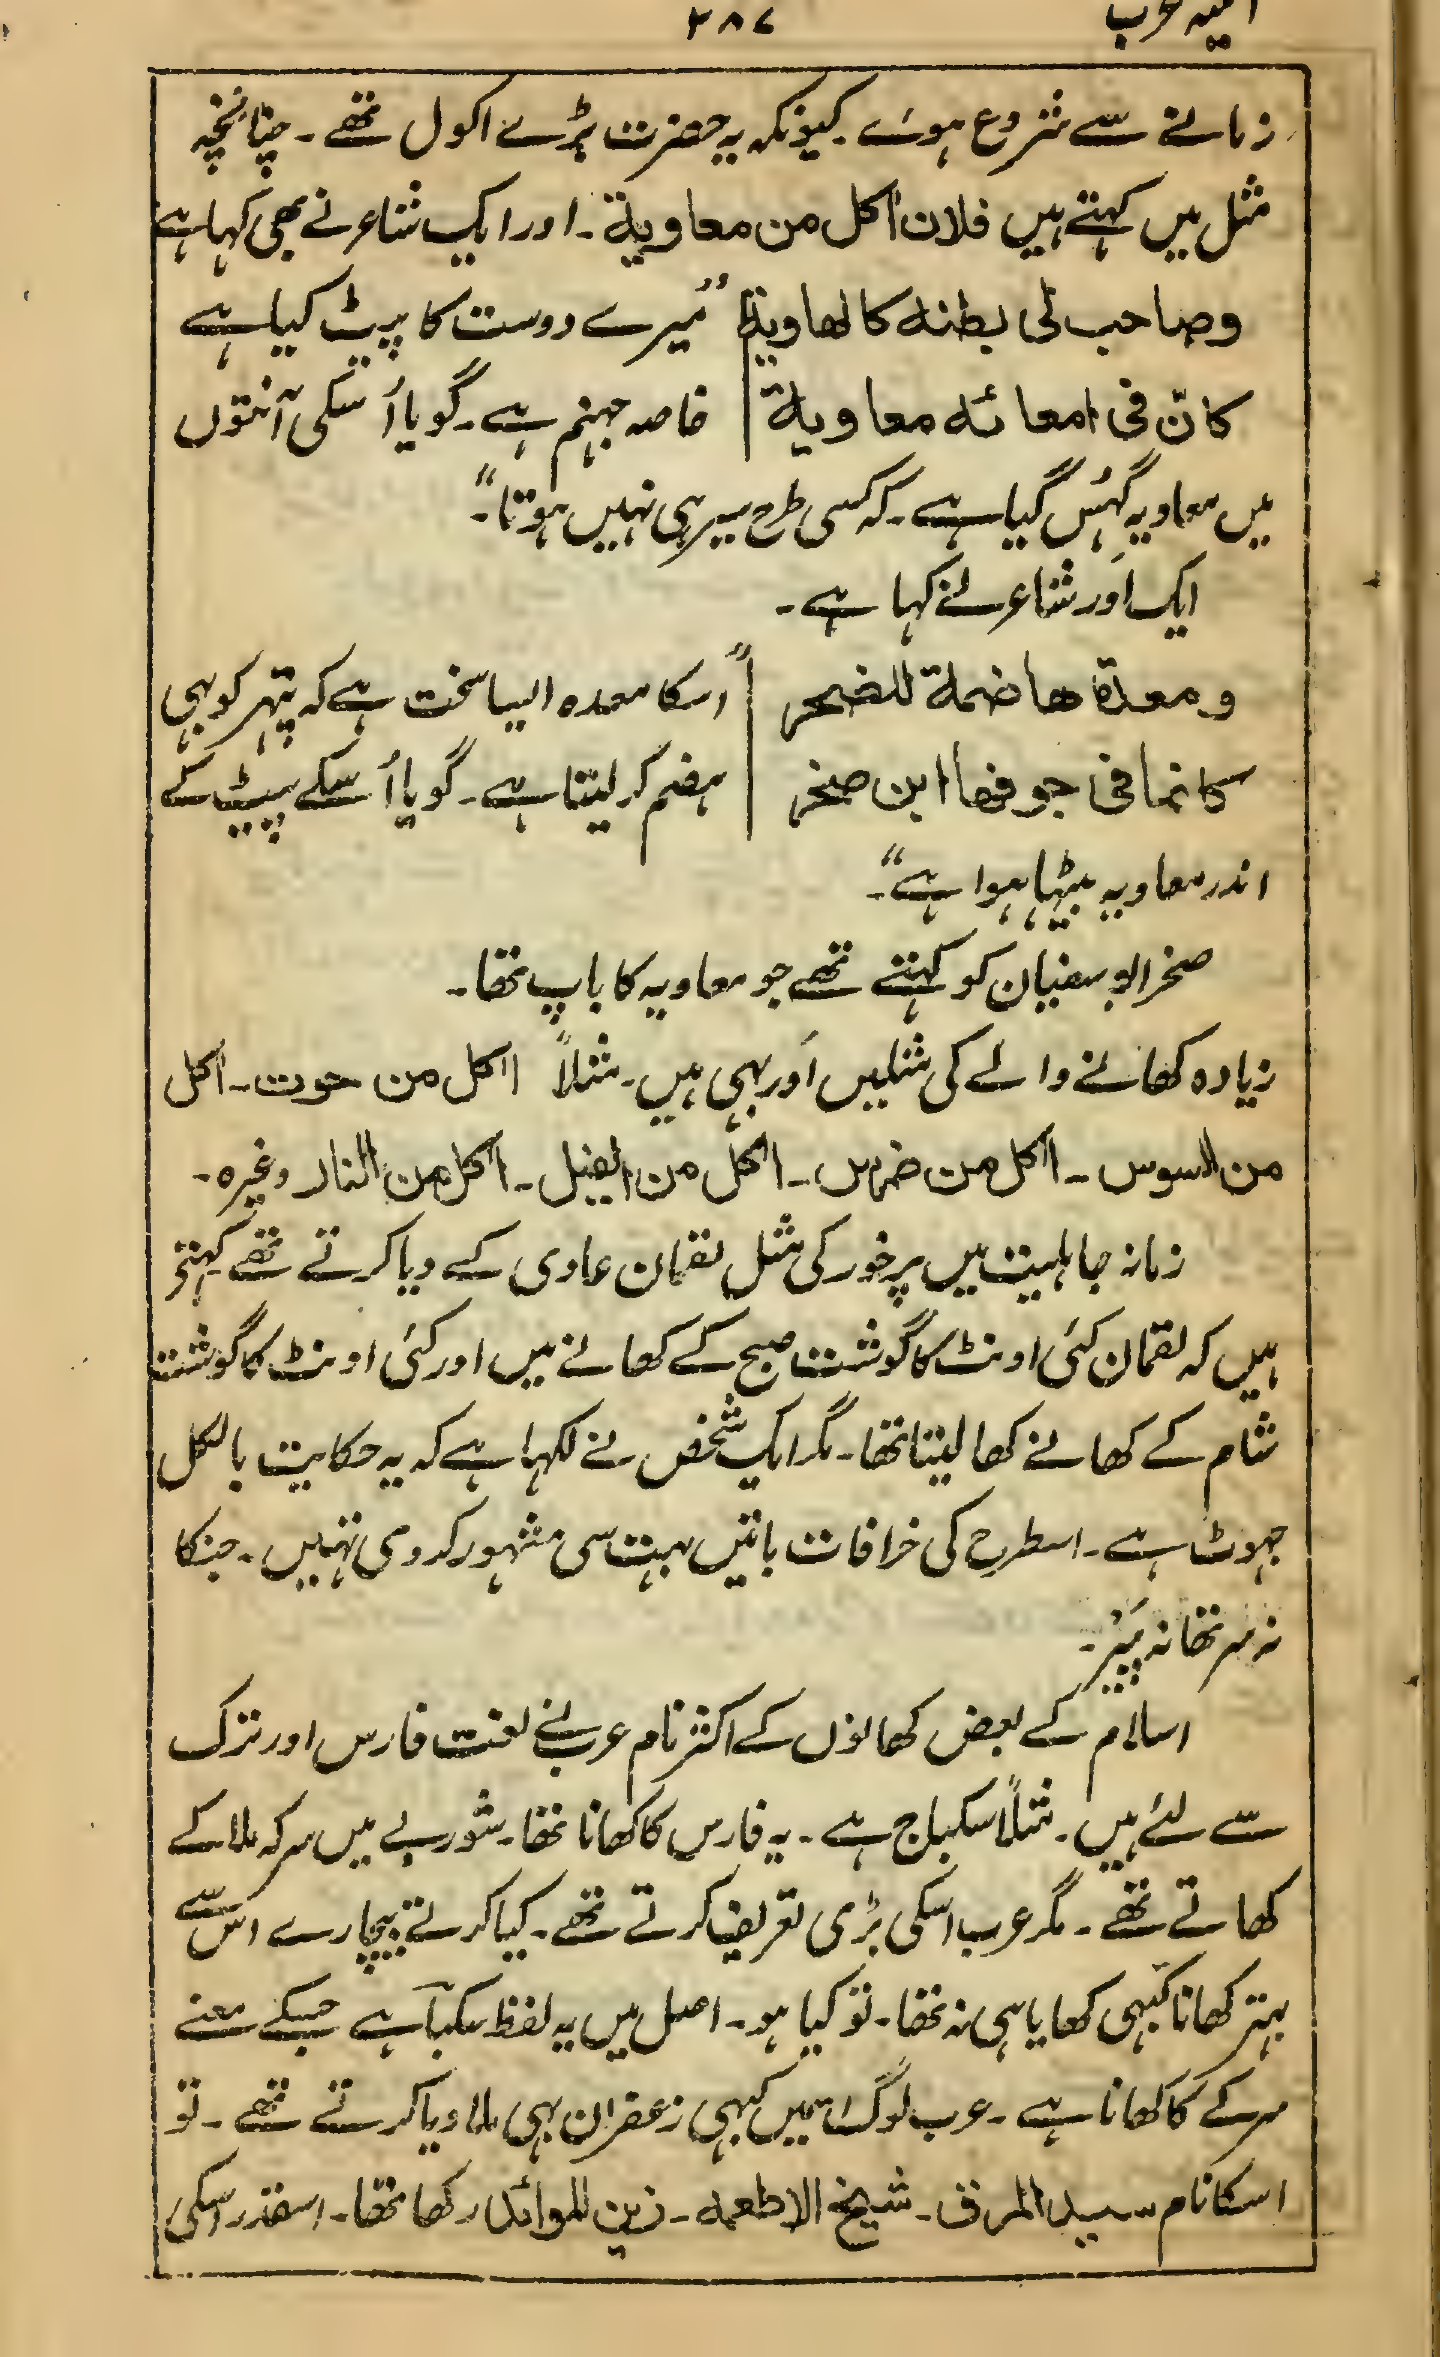 ۳۸۷
زمانے سے شروع ہوئے۔ کیونکہ یہ حضرت بڑے اکول تھے۔ چنانچہ
مثل میں کہتے ہیں فلان اکل من معاویۃ۔ اور ایک شاعر نے بھی کہا ہے
وصاحب لی بطنہ کالھاویۃ | "میرے دوست کا پیٹ کیا ہے
کانّ فی امعائہ معاویۃ | خاصہ جہنم ہے۔ گویا اُسکی آنتوں
میں معاویہ گہُس گیا ہے۔ کہ کسی طرح سیر ہی نہیں ہوتا"۔
ایک اَور شاعر نے کہا ہے۔
ومعدۃ ھاضمۃ للصخر | "اسکا معدہ ایسا سخت ہے کہ پتہر کو بہی
کانما فی جوفھا ابن صخر | ہضم کر لیتا ہے۔ گویا اُسکے پیٹ کے
اندر معاویہ بیٹہا ہوا ہے"۔
صخر ابو سفیان کو کہتے تھے جو معاویہ کا باپ تھا۔
زیادہ کھانے والے کی مثلیں اَور بہی ہیں۔ مثلاً اٰکل من حوت۔ اٰکل
من السوس۔ اٰکل من ضرس۔ اٰکل من الفیل۔ اٰکل من النار وغیرہ۔
زمانہ جاہلیت میں پرخور کی مثل لقمان عادی کے دیا کرتے تھے کہتے
ہیں کہ لقمان کئی اونٹ کا گوشت صبح کے کھانے میں اور کئی اونٹ کا گوشت
شام کے کھانے کھا لیتا تھا۔ مگر ایک شخص نے لکہا ہے کہ یہ حکایت بالکل
جہوٹ ہے۔ اسطرح کی خرافات باتیں بہت سی مشہور کردی تہیں۔ جنکا
نہ سر تھا نہ پَیر۔
اسلام کے بعض کھانوں کے اکثر نام عرب نے لغت فارس اور ترک
سے لئے ہیں۔ مثلاً سکباج ہے۔ یہ فارس کا کھانا تھا۔ شوربے میں سرکہ ملا کے
کھاتے تھے۔ مگر عرب اسکی بڑی تعریف کرتے تھے۔ کیا کرتے بیچارے اس سے
بہتر کھانا کبہی کھایا ہی نہ تھا۔ تو کیا ہو۔ اصل میں یہ لفظ سکبآ ہے جسکے معنے
سرکے کا کھانا ہے۔ عرب لوگ اسمیں کبہی زعفران بہی ملا دیا کرتے تھے۔ تو
اسکا نام سید المرق۔ شیخ الاطعمہ۔ زین الموائد رکھا تھا۔ اسقدر اسکی